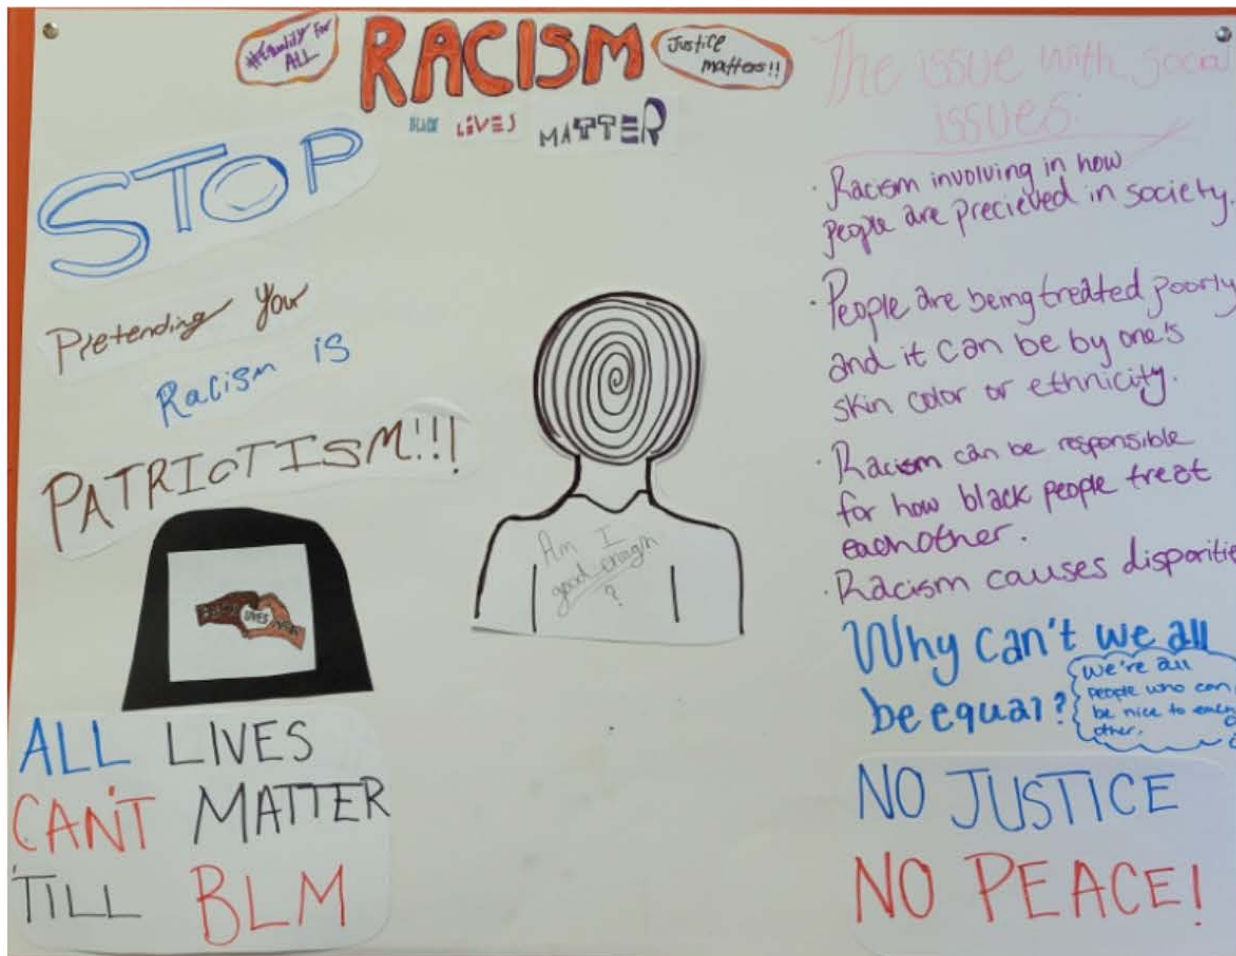 #Equality for
ALL
RACISM
Justice
matters!!
BLACK LIVES MATTER
STOP
Pretending Your
Racism is
PATRIOTISM!!!
LIVES
ALL LIVES
CAN'T MATTER
'TILL BLM
Am I
good enough
?
The issue with social
issues:
· Racism involving in how
people are precieved in society.
· People are being treated poorly
and it can be by one's
skin color or ethnicity.
· Racism can be responsible
for how black people treat
eachother.
· Racism causes disparitie
Why can't we all
be equal?
We're all
people who can
be nice to each
other.
NO JUSTICE
NO PEACE!